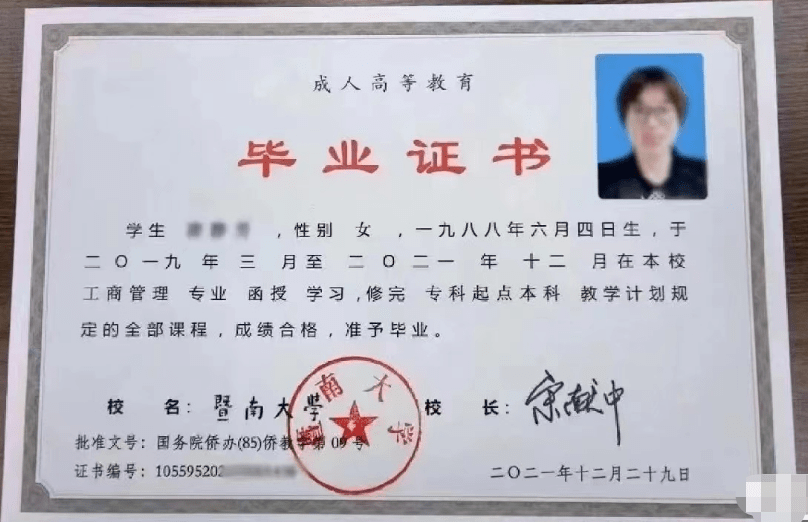 成人高等教育
毕业证书
学生 ，性别 女 ，一九八八年六月四日生，于
二〇一九 年 三 月至 二〇二一 年 十二 月在本校
工商管理 专业 函授 学习，修完 专科起点本科 教学计划规
定的全部课程，成绩合格，准予毕业。
校 名：暨南大学 校 长：宋献中
暨南大学
批准文号：国务院侨办(85)侨教字第 09 号
证书编号：105595202
二〇二一年十二月二十九日